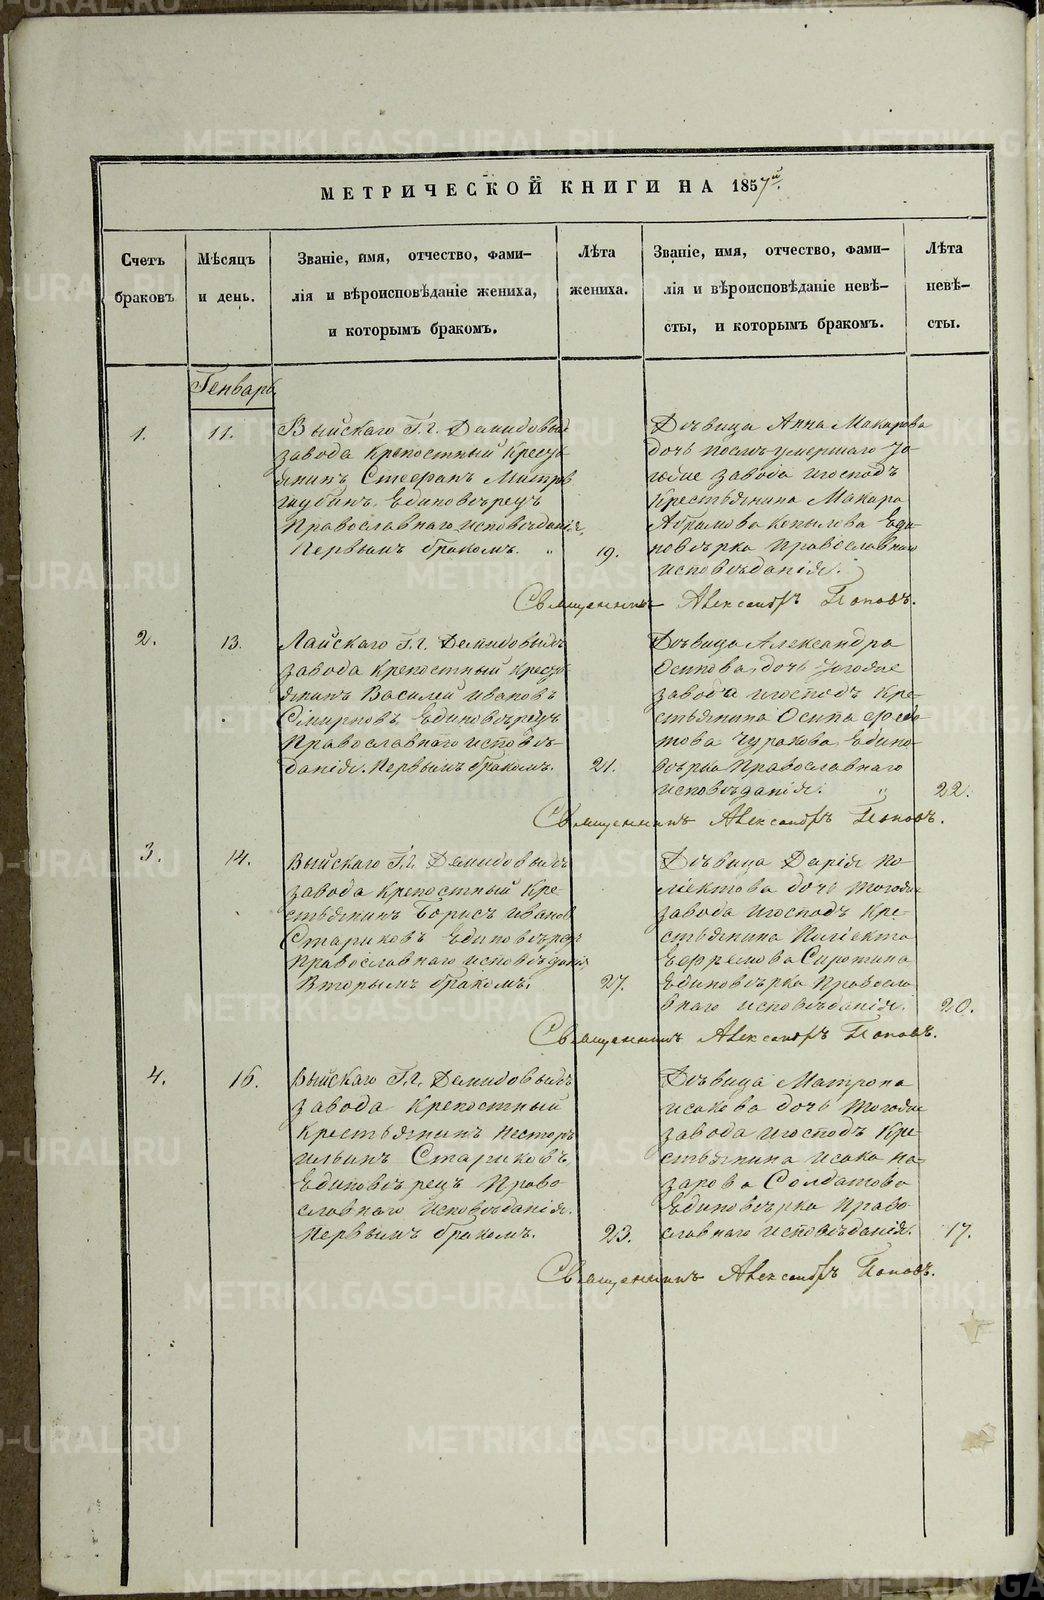 МЕТРИЧЕСКОЙ КНИГИ НА 1857й.
Счетъ браковъ
Мѣсяцъ и день.
Званіе, имя, отчество, фами-
лія и вѣроисповѣданіе жениха,
и которымъ бракомъ.
Лѣта жениха.
Званіе, имя, отчество, фами-
лія и вѣроисповѣданіе невѣ-
сты, и которымъ бракомъ.
Лѣта невѣ-
сты.
Генварь
1.
11.
Выйскаго Г.г. Демидовыхъ
завода крепостный кресть
янинъ Стефанъ
Единовѣрецъ
Православнаго исповѣданія,
Первымъ бракомъ. „
19.
Дѣвица Анна Макарова
дочь послѣ умершаго То-
гоже завода игосподъ
крестьянина Макара
Абрамова Копылова Еди-
новѣрка Православнаго
исповѣданія.
Священникъ Александръ Поповъ.
2.
13.
Лайскаго Г.г. Демидовыхъ
завода крепостный кресть
янинъ Василей Ивановъ
Смирновъ, Единовѣрецъ
Православнаго исповѣ-
данія. Первымъ бракомъ.
21.
Дѣвица Александра
Осипова, дочь Тогоже
завода игосподъ Кре-
стьянина Осипа Федо
това Чуракова, Едино-
вѣрка Православнаго
исповѣданія. „
22.
Священникъ Александръ Поповъ.
3.
14.
Выйскаго Г.г. Демидовыхъ
завода крепостный Кре-
стьянинъ Борисъ Иванов
Стариковъ Единовѣрецъ
Православнаго исповѣданія
Вторымъ бракомъ.
27.
Дѣвица Дарія По
ліектова дочь тогоже
завода игосподъ Кре-
стьянина Поліекта
Ефремова Сиротина
Единовѣрка Правосла
внаго исповѣданія.
20.
Священникъ Александръ Поповъ.
4.
16.
Выйскаго Г.г. Демидовыхъ
завода Крепостный
Крестьянинъ Несторъ
Ильинъ Стариковъ,
Единовѣрецъ Право
славнаго исповѣданія.
Первымъ бракомъ.
23.
Дѣвица Матрона
Исакова дочь тогоже
завода игосподъ Кре
стьянина Исака На-
зарова Солдатова
Единовѣрка Право
славнаго исповѣданія.
17.
Священникъ Александръ Поповъ.
METRIKI.GASO-URAL.RU